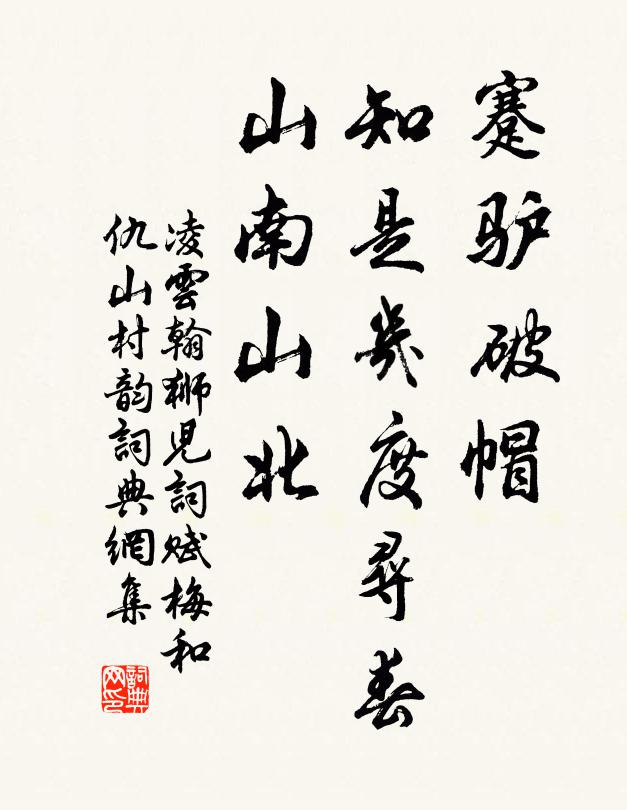 蹇驴破帽
知是幾度尋春
山南山北
凌雲翰獅児詞赋梅和
仇山村韵詞典網集
詞典网印